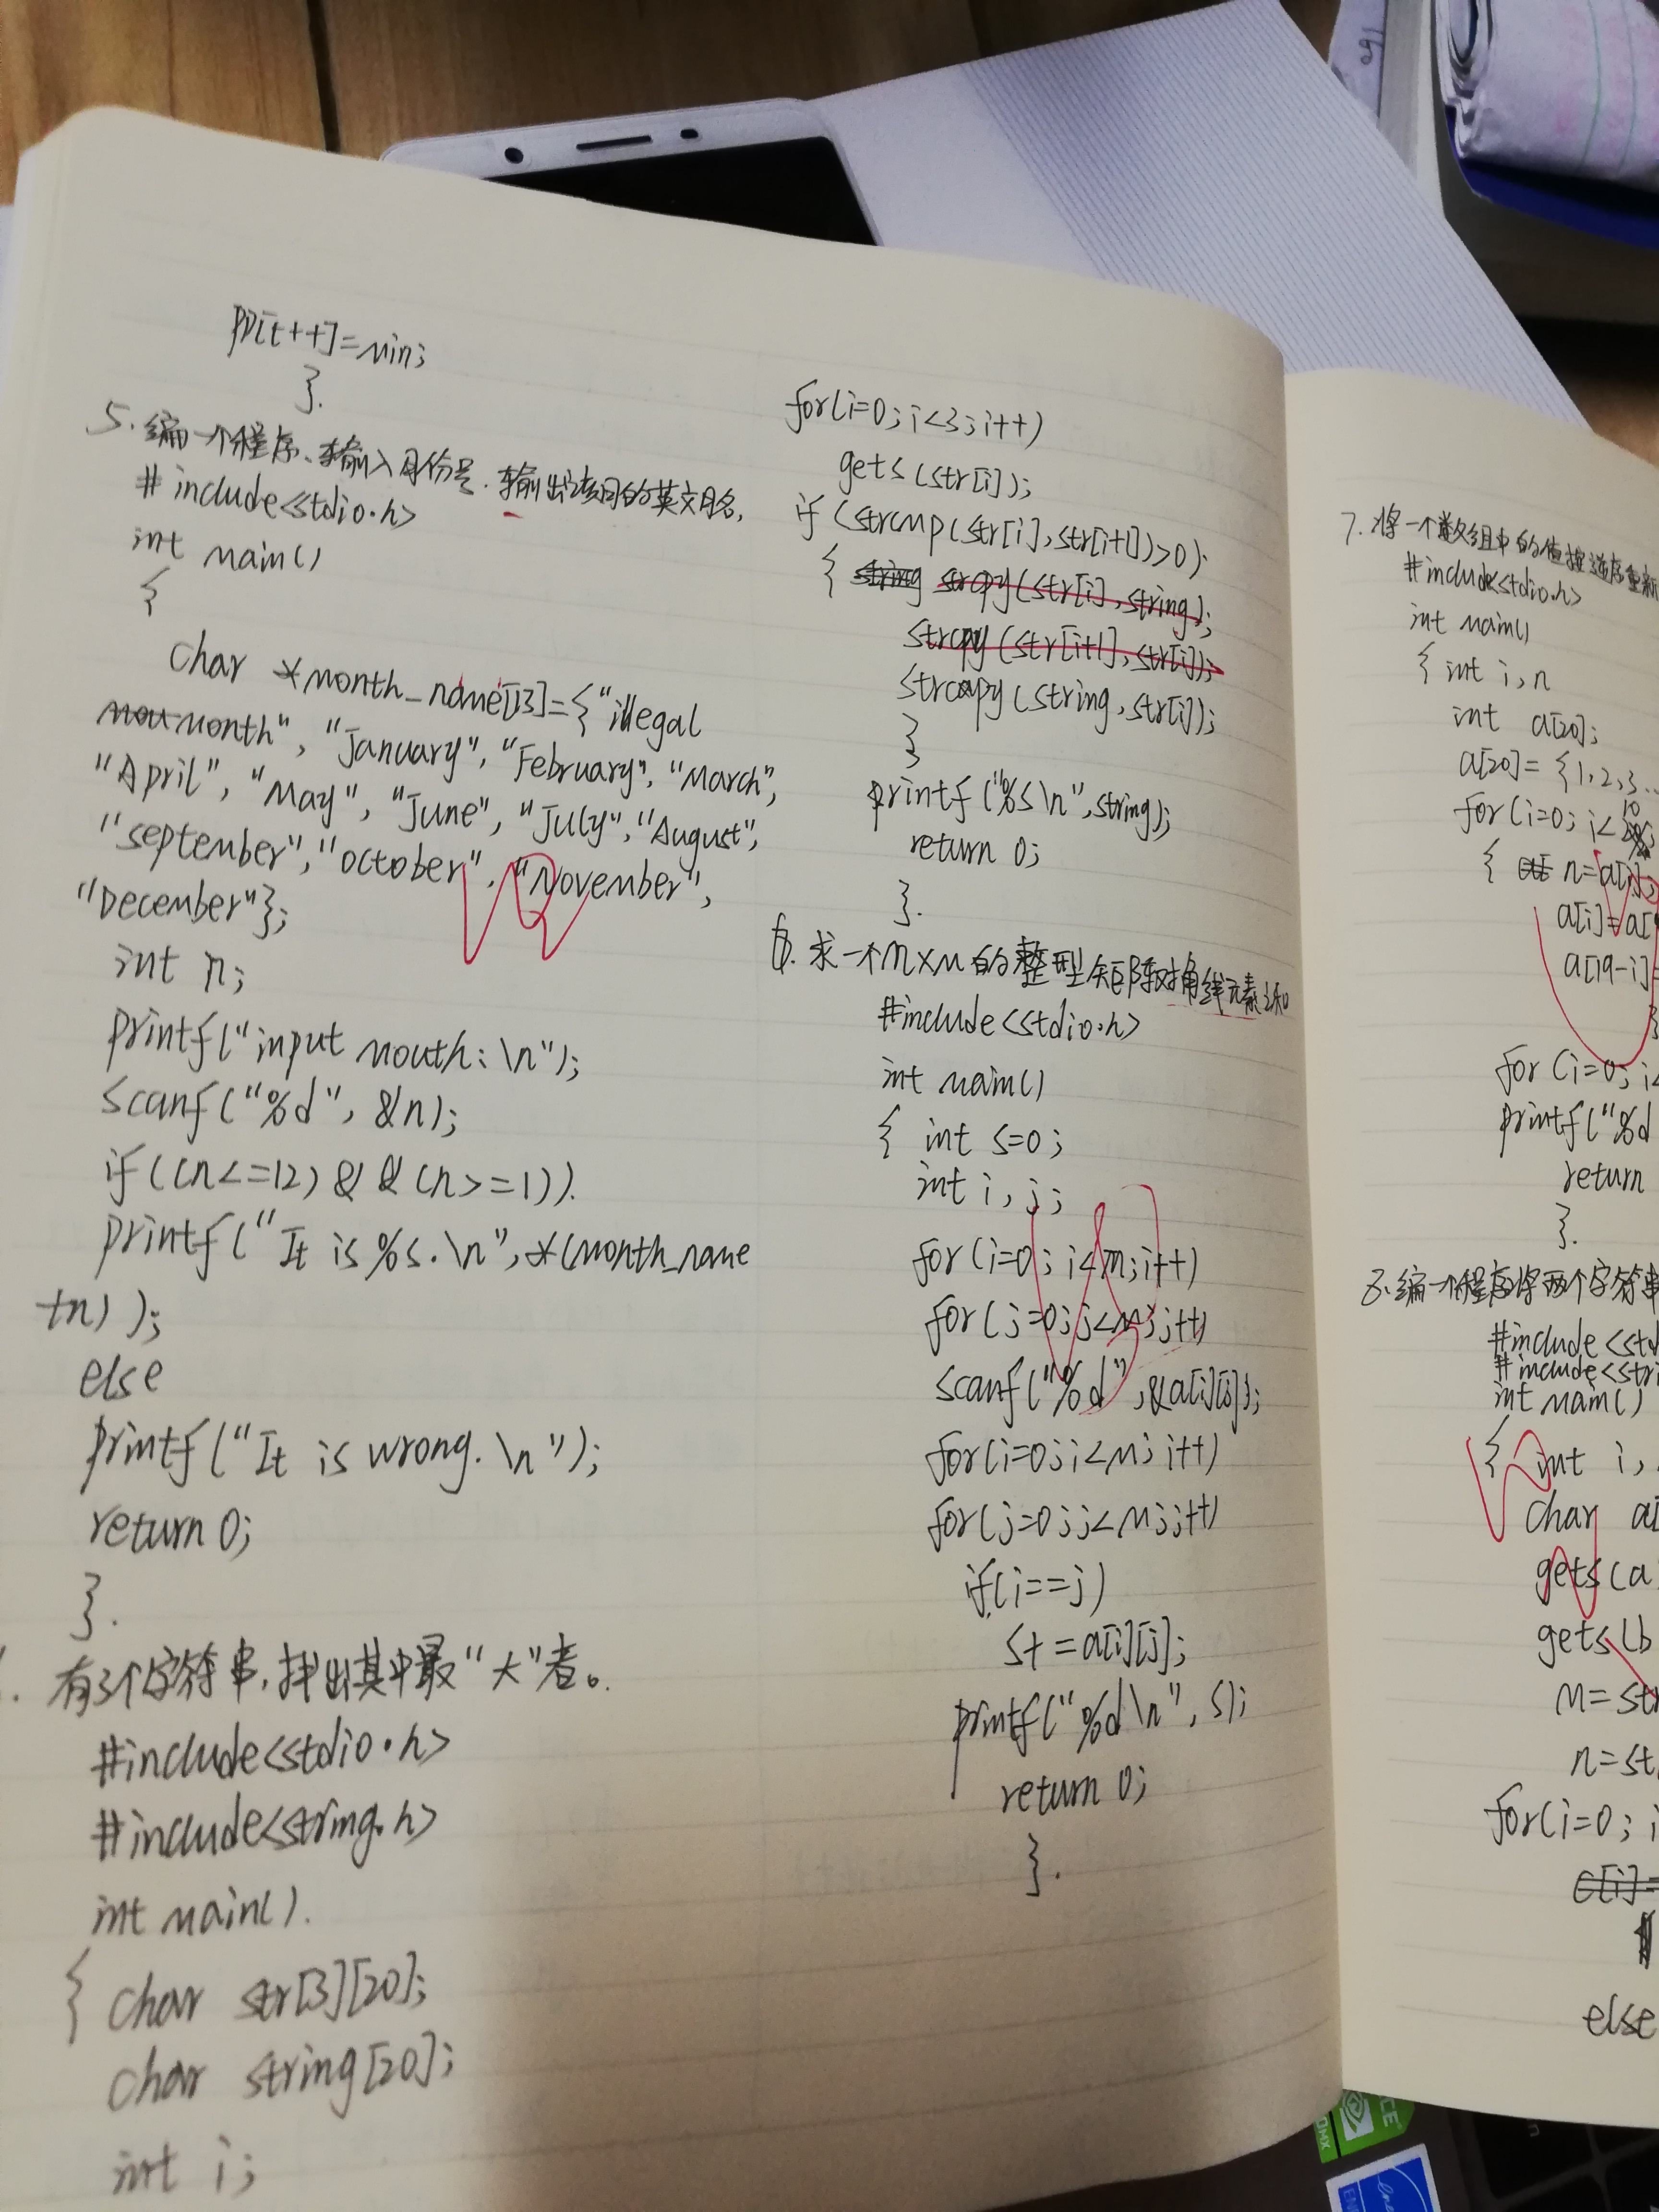 pp[t++]=min;
}.
5.编一个程序、输入月份号.输出该月的英文月名,
# include<stdio.h>
int main()
{
char *month_name[13]={"illegal
month", "January", "February", "March",
"April", "May", "June", "July", "August",
"september", "october", "November",
"December"};
int n;
printf("input mouth: \n");
scanf("%d", &n);
if((n<=12) && (n>=1)).
printf("It is %s.\n", *(month_name
+n) );
else
printf("It is wrong. \n");
return 0;
}.
. 有3个字符串,找出其中最"大"者。
#include<stdio.h>
#include<string.h>
int main().
{ char str[3][20];
char string[20];
int i;
for(i=0; i<3; i++)
gets(str[i]);
if (strcmp(str[i], str[i+1])>0);
{ string strcpy(str[i], string);
strcpy(str[i+1], str[i]);
strcapy(string, str[i]);
}
printf("%s\n", string);
return 0;
}.
6. 求一个m×m的整型矩阵对角线元素之和
#include<stdio.h>
int main()
{ int s=0;
int i, j;
for(i=0; i<m; i++)
for(j=0; j<m; j++)
scanf("%d", &a[i][j]);
for(i=0; i<m; i++)
for(j=0; j<m; j++)
if(i==j)
s+=a[i][j];
printf("%d\n", s);
return 0;
}.
7.将一个数组中的值按逆序重新
#include<stdio.h>
int main()
{ int i, n
int a[20];
a[20]= {1,2,3...
for(i=0; i<10
{ n=a[i];
a[i]=a[
a[19-i]=
}
for (i=0; i<
printf("%d
return
}.
8.编一个程序将两个字符串
#include <std
#include<stri
int main()
{ int i,
char a[
gets(a
gets(b
m=str
n=st
for(i=0; i
c[i]=
else